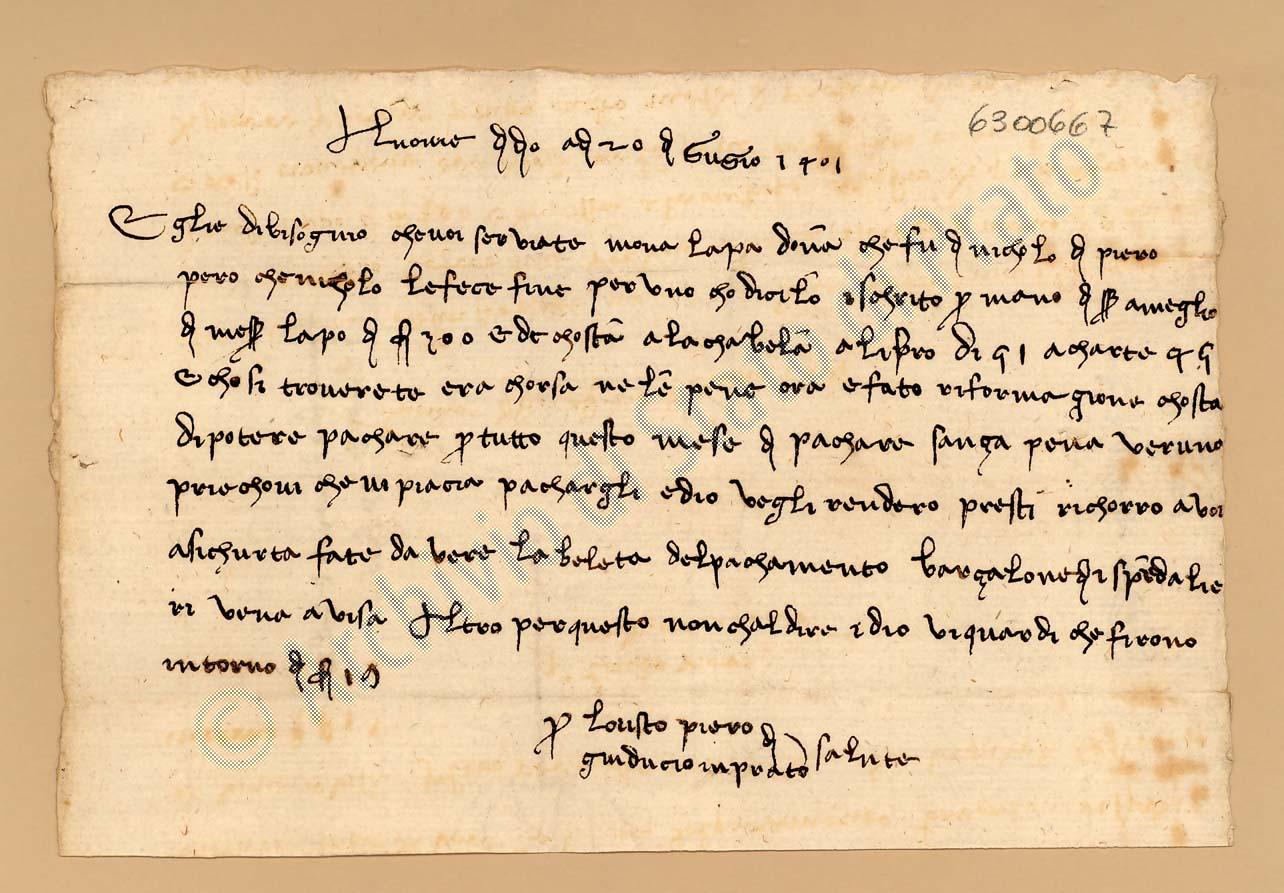 6300667
Al nome di dio adi 20 di Gugio 1401
Eglie dibisognio chevoi serviate mona lapa dona che fu di nicholo di piero
pero che nicholo le fece fine per uno chodicilo ischrito per mano di ser amelio
di meser lapo di fi 200 e de chosta ala chabela a libro di 51 a charte 45
e chosi troverete era chorsa nele pene ora e fato riformagione chosta
di potere pachare per tutto questo mese di pachare sança pena veruno
priechovi che vi piacia pachargli ed io ve gli rendero presti richorro a voi
a sichurta fate davere la beleta del pachamento barçalone di spedalie
ri vena avisa Altro per questo non chal dire idio vi quardi che firono
intorno di fi 10
per lo vsto piero di
guiducio in prato salute
© Archivio di Stato di Prato